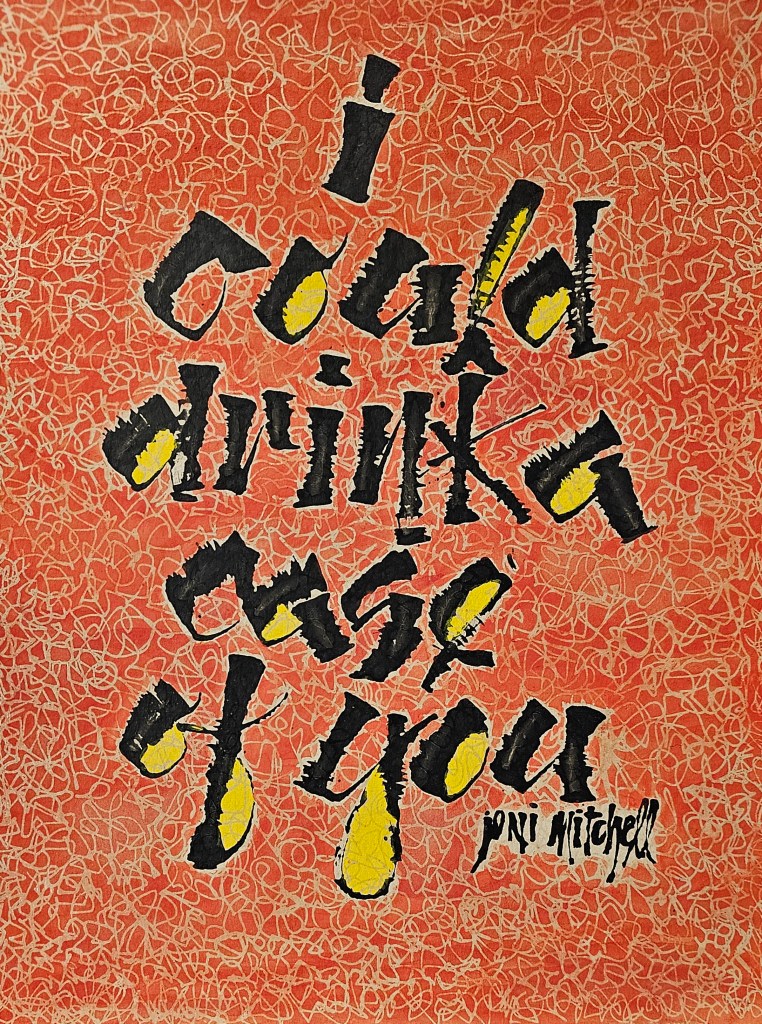 i
could
drink a
case
of you
joni mitchell